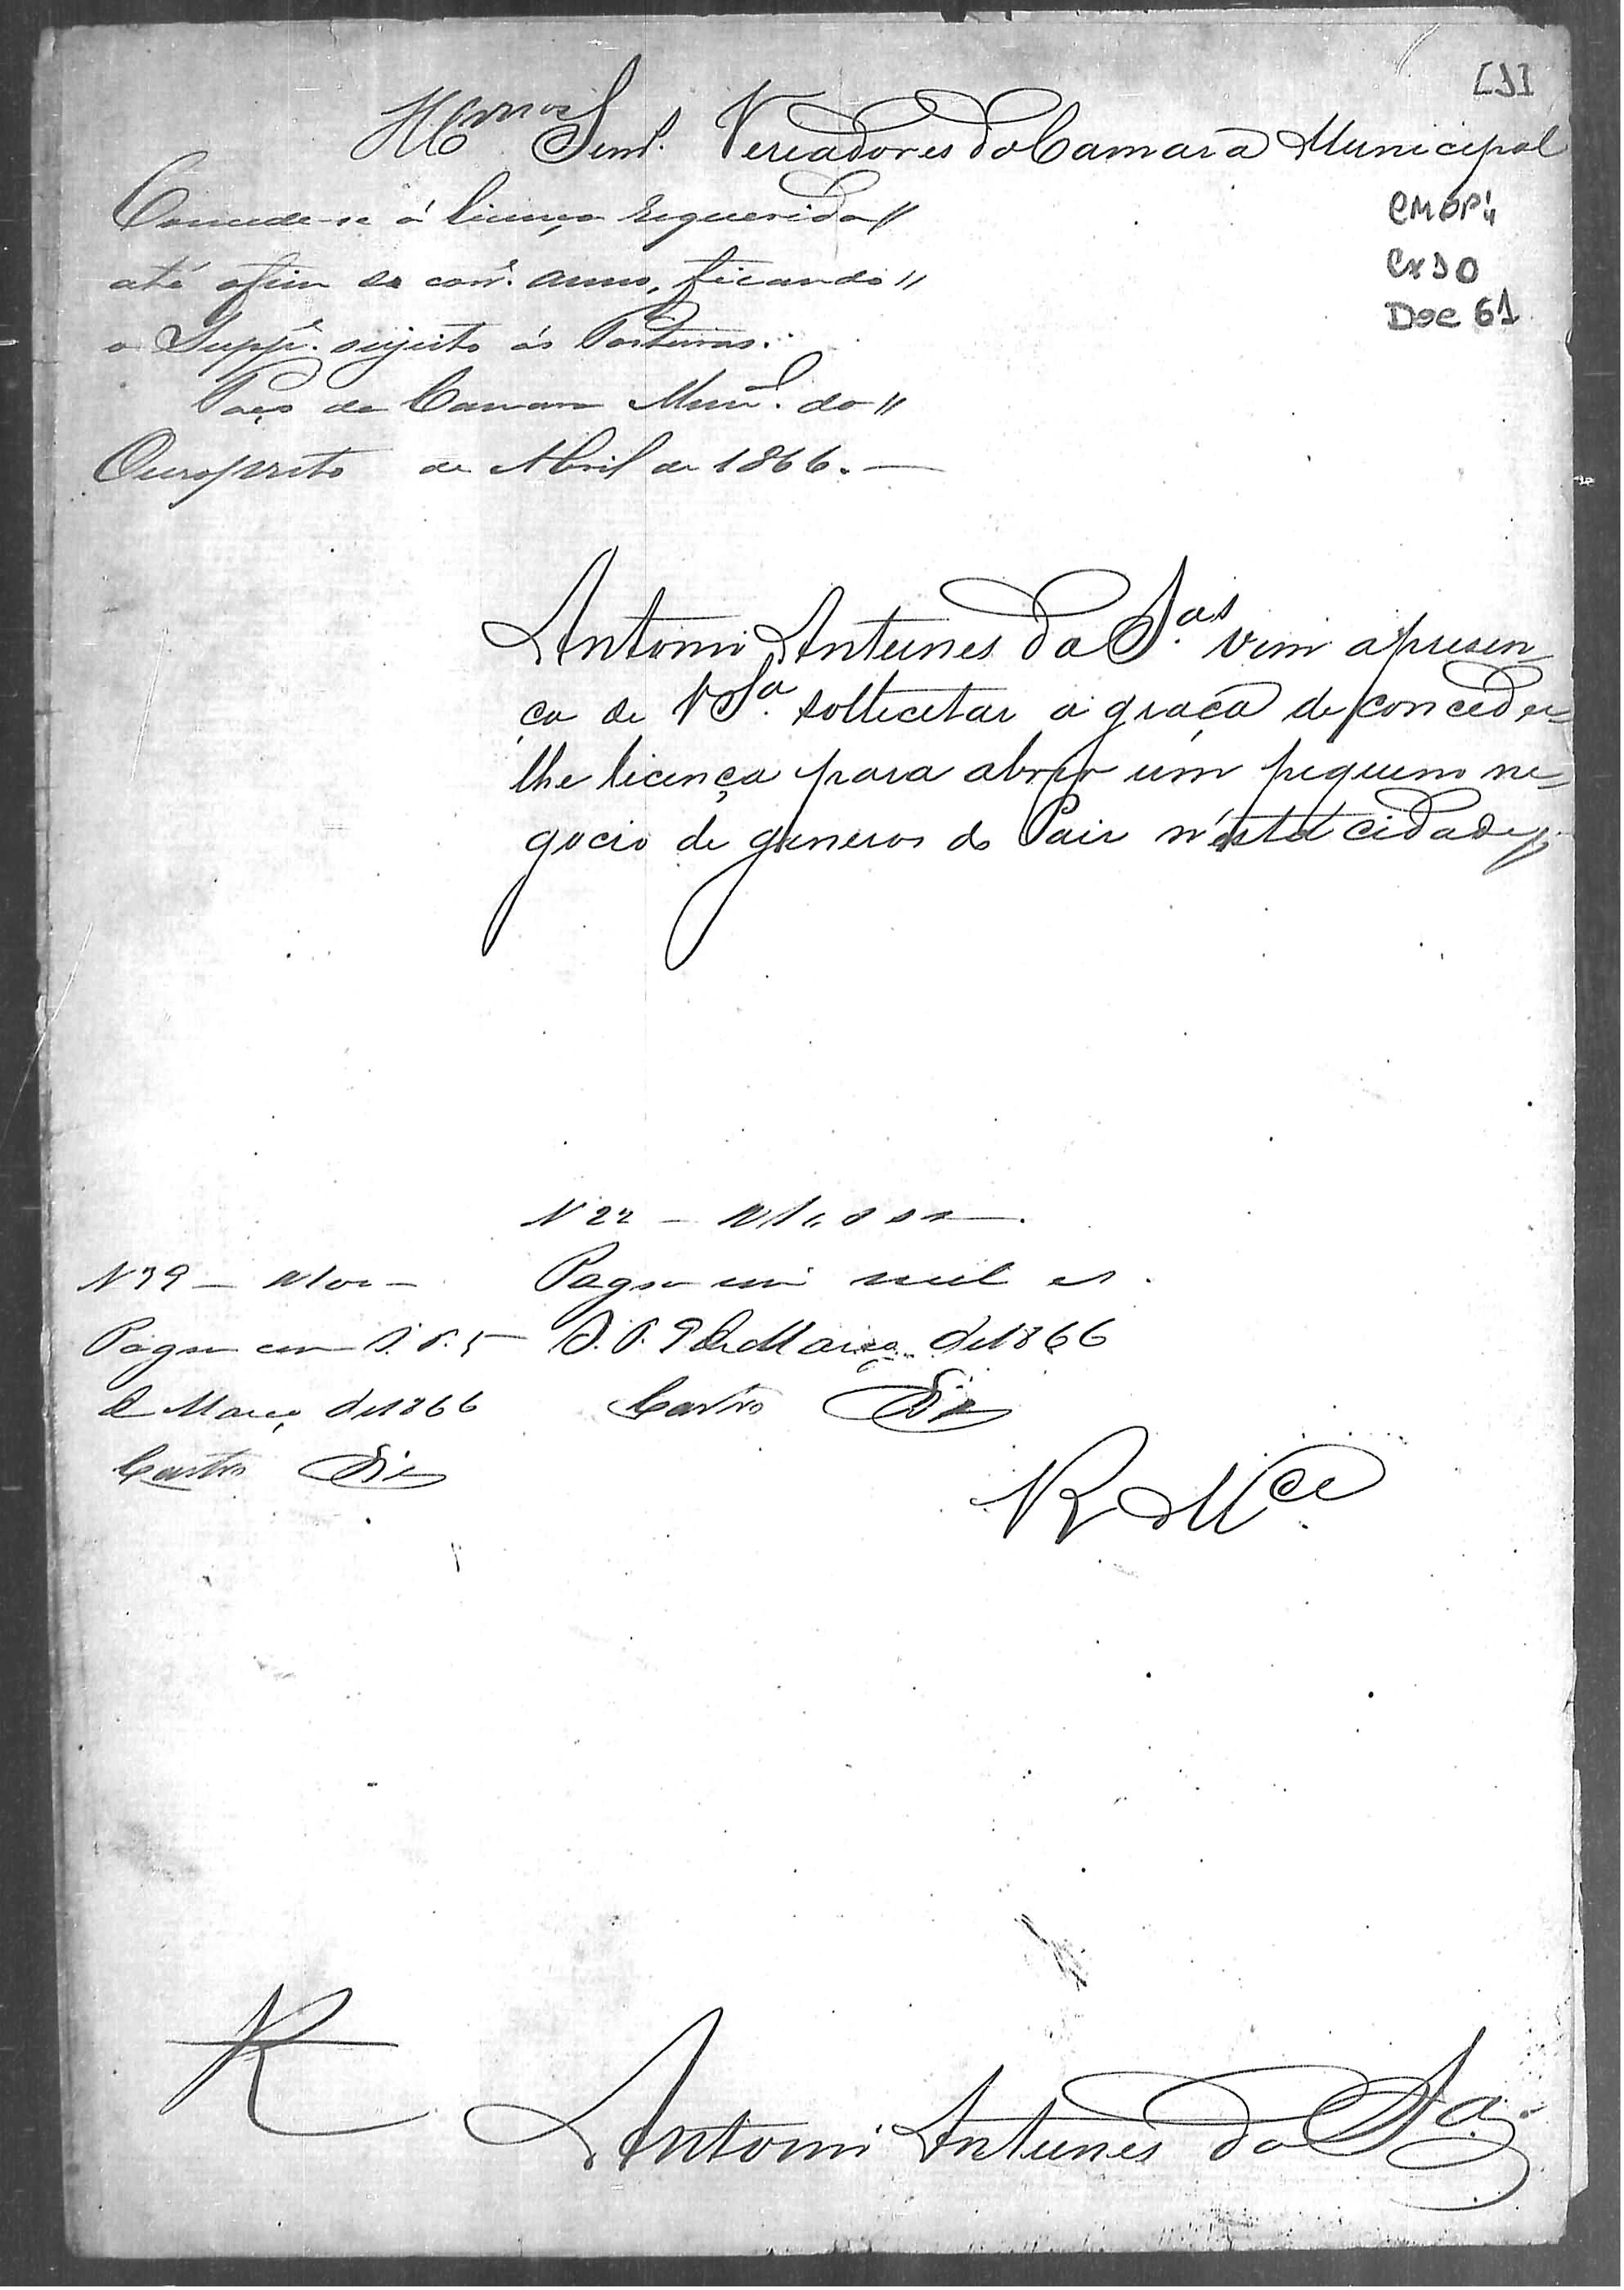 [1]
Illmos Senrs. Vereadores da Camara Municipal
CMOP
Cx 10
Doc 61
Concede-se á licença requerida
até o fim do corre. anno, ficando
o Suppe. sujeito ás Posturas.
Paço da Camara Munal. do
Ouro preto de Abril de 1866.
Antonio Antunes da Sa. vem apresen
ça de V Sas. sollicitar a graça de conceder
lhe licença para abrir um pequeno ne
gocio de generos do Paiz n'esta cidade
N 22 - 1000
Pagou um mil rs.
O. P. 9 de Março de 1866
Castro
N 39
Pagou cem O. P. 5
de Março de 1866
Castro
R Mce
R
Antonio Antunes da Sa.